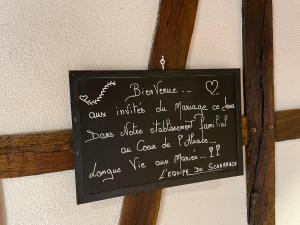 BienVenue...
aux invités du Mariage ce
Dans Notre établissement familial
au Coeur de l'Alsace...
Longue Vie aux Mariés... !!
L'EQUIPE DU SCHARRACH